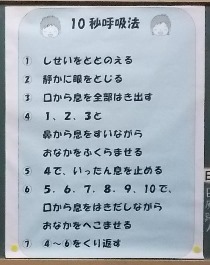 10秒呼吸法
① しせいをととのえる
② 静かに眼をとじる
③ 口から息を全部はき出す
④ 1、2、3と
鼻から息をすいながら
おなかをふくらませる
⑤ 4で、いったん息を止める
⑥ 5、6、7、8、9、10で、
口から息をはきだしながら
おなかをへこませる
⑦ 4～6をくり返す